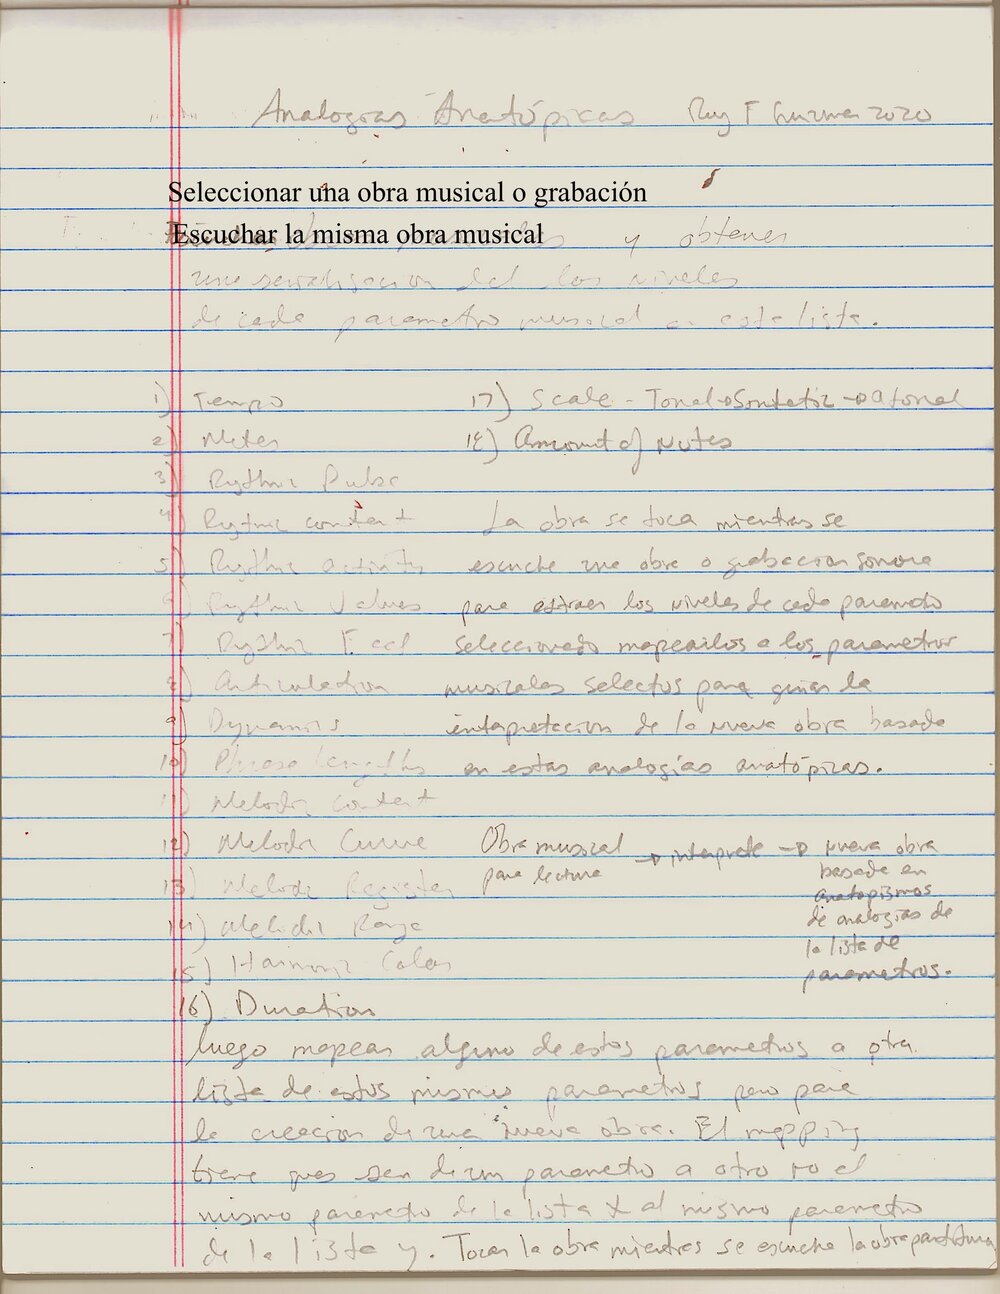 Analogias Anatópicas Ruy F Guzman 2020
Seleccionar una obra musical o grabación
Escuchar la misma obra musical y obtener
una serialización del los niveles
de cada parametro musical en esta lista.
1) Tiempo
2) Meter
3) Rythmic Pulse
4) Rytmic content
5) Rythmic activity
6) Rythmic Values
7) Rythmic
8) Articulation
9) Dynamics
10) Phrase lengths
11) Melodic content
12) Melodic Curve
13) Melodic Register
14) Melodic Range
15) Harmonic Color
16) Duration
17) Scale - Tonal → Sintetic → atonal
18) Amount of Notes
La obra se toca mientras se
escuche una obra o grabacion sonora
para extraer los niveles de cada parametro
seleccionado mapearlos a los parametros
musicales selectos para guiar la
interpretacion de la nueva obra basada
en estas analogías anatópicas.
Obra musical
para lectura
→ interprete → nueva obra
basada en
anatopismos
de analogias de
la lista de
parametros.
luego mapear alguno de estos parametros a otra
lista de estos mismos parametros pero para
la creacion de una nueva obra. El mapping
tiene que ser de un parametro a otro no el
mismo parametro de la lista x al mismo parametro
de la lista y. Tocar la obra mientras se escuche la obra partitura